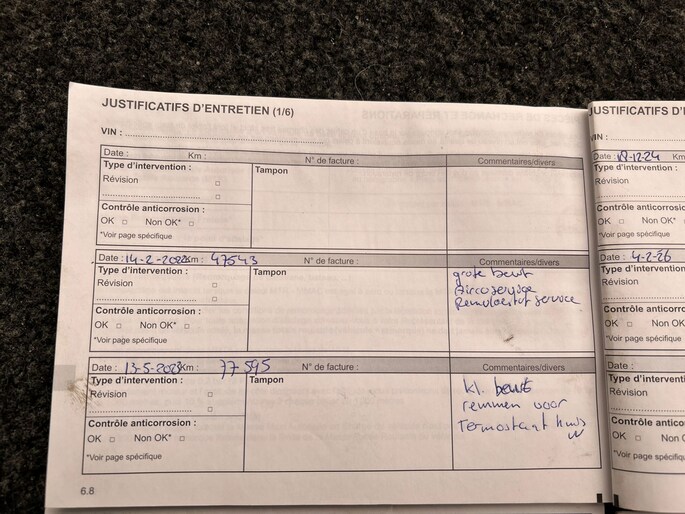 JUSTIFICATIFS D'ENTRETIEN (1/6)
VIN :
Date : Km : N° de facture : Commentaires/divers
Type d'intervention : Tampon
Révision
Contrôle anticorrosion :
OK Non OK*
*Voir page spécifique
Date : 14-2-202 Km : 47543 N° de facture : Commentaires/divers
Type d'intervention : Tampon
Révision
Contrôle anticorrosion :
OK Non OK*
*Voir page spécifique
grote beurt
Aircoservice
Remvloeistof service
Date : 13-5-202 Km : 77595 N° de facture : Commentaires/divers
Type d'intervention : Tampon
Révision
Contrôle anticorrosion :
OK Non OK*
*Voir page spécifique
kl. beurt
remmen voor
Termostaat huis
6.8
JUSTIFICATIFS D'
VIN :
Date : 18-12-24 Km
Type d'intervention :
Révision
Contrôle anticorrosio
OK Non OK
*Voir page spécifique
Date : 4-2-26
Type d'intervention :
Révision
Contrôle anticorros
OK Non O
*Voir page spécifiqu
Date :
Type d'intervention
Révision
Contrôle anticorro
OK Non
*Voir page spécifiq